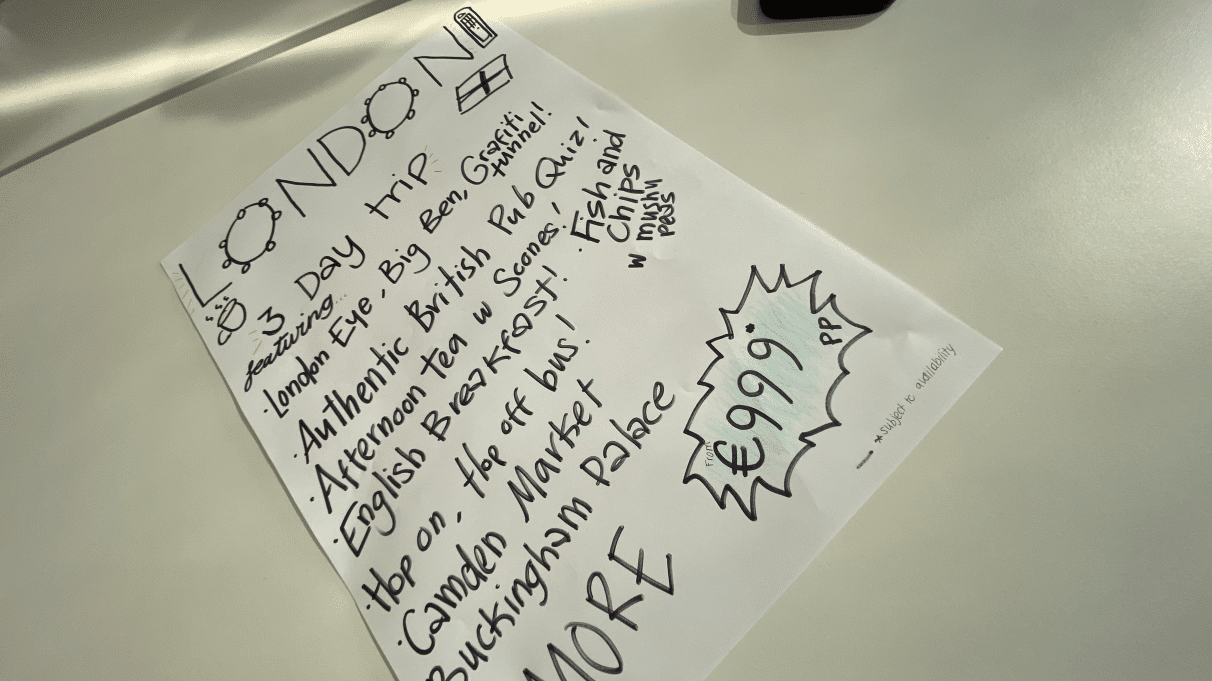 LONDON
3 Day trip
featuring...
· London Eye, Big Ben, Grafiti tunnel!
· Authentic British Pub Quiz!
· Afternoon tea w Scones!
· English Breakfast!
· Fish and
Chips
w mushy
peas
· Hop on, Hop off bus!
· Camden Market
Buckingham Palace
MORE
From
€999*
PP
*subject to availability